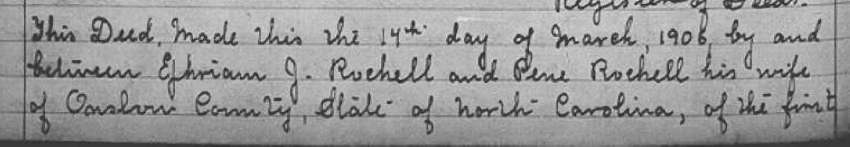 Register of Deeds.
This Deed, Made this the 14th day of March, 1906, by and
between Ephriam J. Rochell and Pene Rochell his wife
of Onslow County, State of North Carolina, of the first